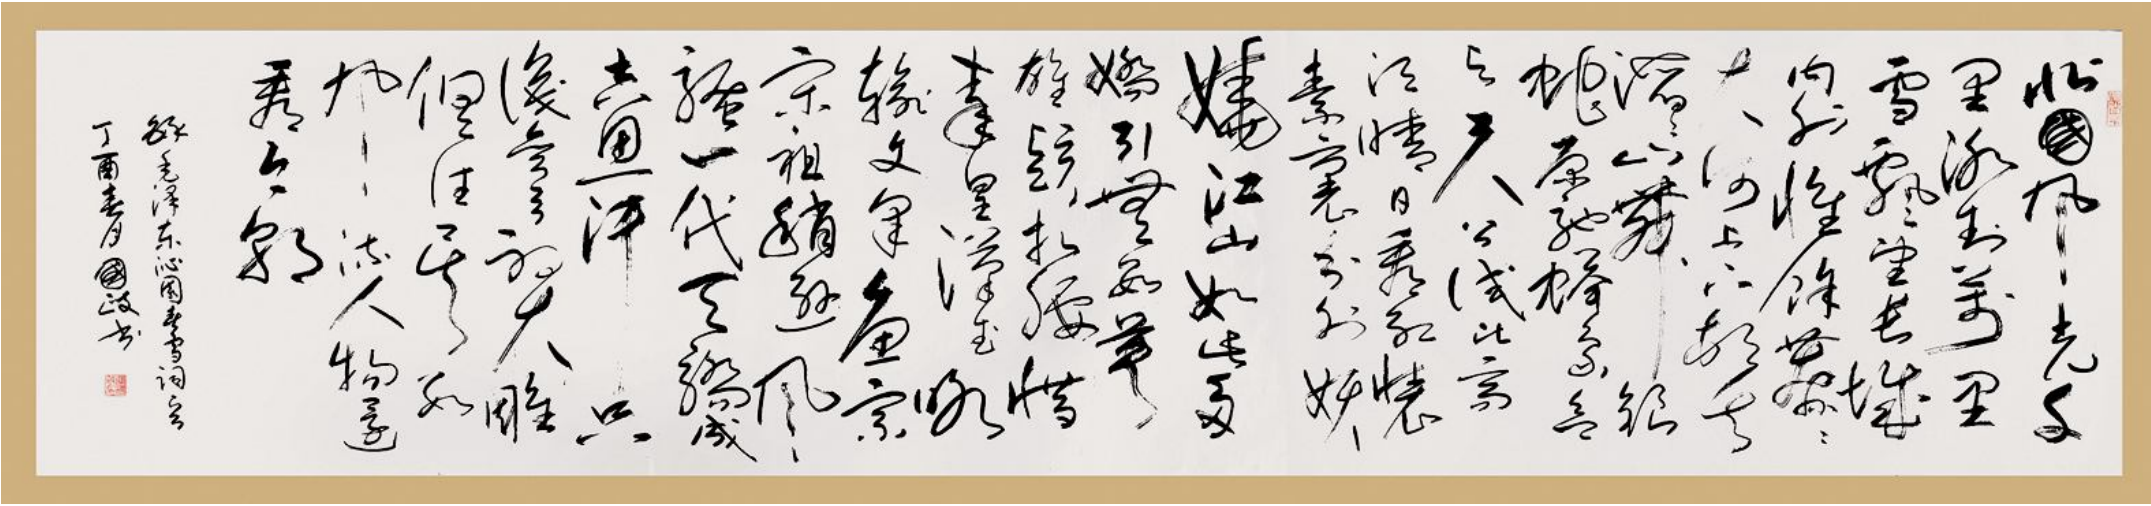 北國風光千
里冰封萬里
雪飄望長城
内外惟餘莽莽
大河上下頓失
滔滔山舞銀
蛇原馳蠟象欲
与天公試比高
須晴日看紅裝
素裹分外妖
嬈江山如此多
嬌引無數英
雄競折腰惜
秦皇漢武略
輸文采唐宗
宋祖稍遜風
騷一代天驕成
吉思汗只
識彎弓射大雕
俱往矣數
風流人物還
看今朝
錄毛澤東沁園春雪詞
丁酉春月國政书